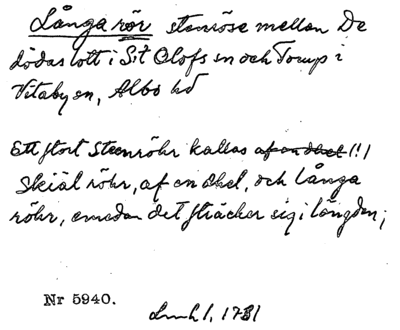 Långa rör stenröse mellan De
dödas lott i S:t Olofs sn och Torup i
Vitaby sn, Albo hd
Ett stort Steenröhr kallas af en deel (!)
Skiäl röhr, af en deel, och Långa
röhr, emedan det sträcker sig i längden;
Nr 5940.
1, 1781